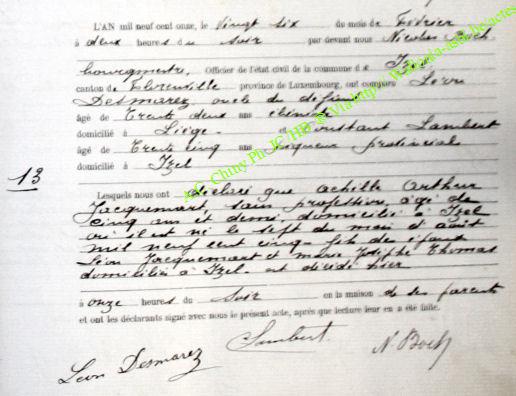 L'AN mil neuf cent onze, le vingt six du mois de Février
à deux heures du soir par devant nous Nicolas Boch
bourgmestre, Officier de l'état civil de la commune de Izel
canton de Florenville province de Luxembourg, ont comparu Léon
Desmarez oncle du défunt
âgé de Trente deux ans ébéniste
domicilié à Liège et Constant Lambert
âgé de Trente cinq ans piqueur provincial
domicilié à Izel
13
Lesquels nous ont déclaré que Achille Arthur
Jacquemart sans profession, âgé de
cinq ans et demi, domicilié à Izel
où il est né le sept du mois d'août
mil neuf cent cinq fils des époux
Léon Jacquemart et Marie Josèphe Thomas
domiciliés à Izel est décédé hier
à onze heures du soir en la maison de ses parents
et ont les déclarants signé avec nous le présent acte, après que lecture leur en a été faite.
Lambert
Léon Desmarez N. Boch